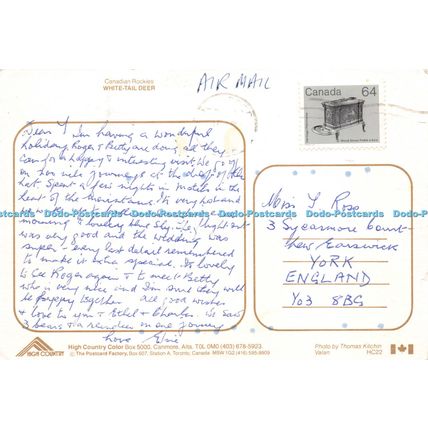 Canadian Rockies
WHITE-TAIL DEER
AIR MAIL
Canada 64
Dear I'm having a wonderful
holiday. Roger & Betty are doing all they
can for a happy & interesting visit. We go off
on
hot. Spent a few nights in motels in the
heart of the mountains. Its very hot and
morning & lovely blue sky. The
was very good and the wedding was
super - every last detail remembered
to make it extra special. Its lovely
to see Roger again & to meet Betty
who is very nice and I'm sure they will
be happy together. All good wishes
& love to you & Ethel & We saw
3 bears & a reindeer in one journey
Love Elsie
Miss J Ross
3 Sycamore Court
New Earswick
YORK
ENGLAND
YO3 8BG
HIGH COUNTRY
High Country Color Box 5000, Canmore, Alta. T0L 0M0 (403) 678-5923.
© The Postcard Factory, Box 607, Station A, Toronto, Canada. M5W 1G2 (416) 585-9909
Photo by Thomas Kitchin
Valan HC22
Dodo-Postcards Dodo-Postcards Dodo-Postcards Dodo-Postcards Dodo-Postcards